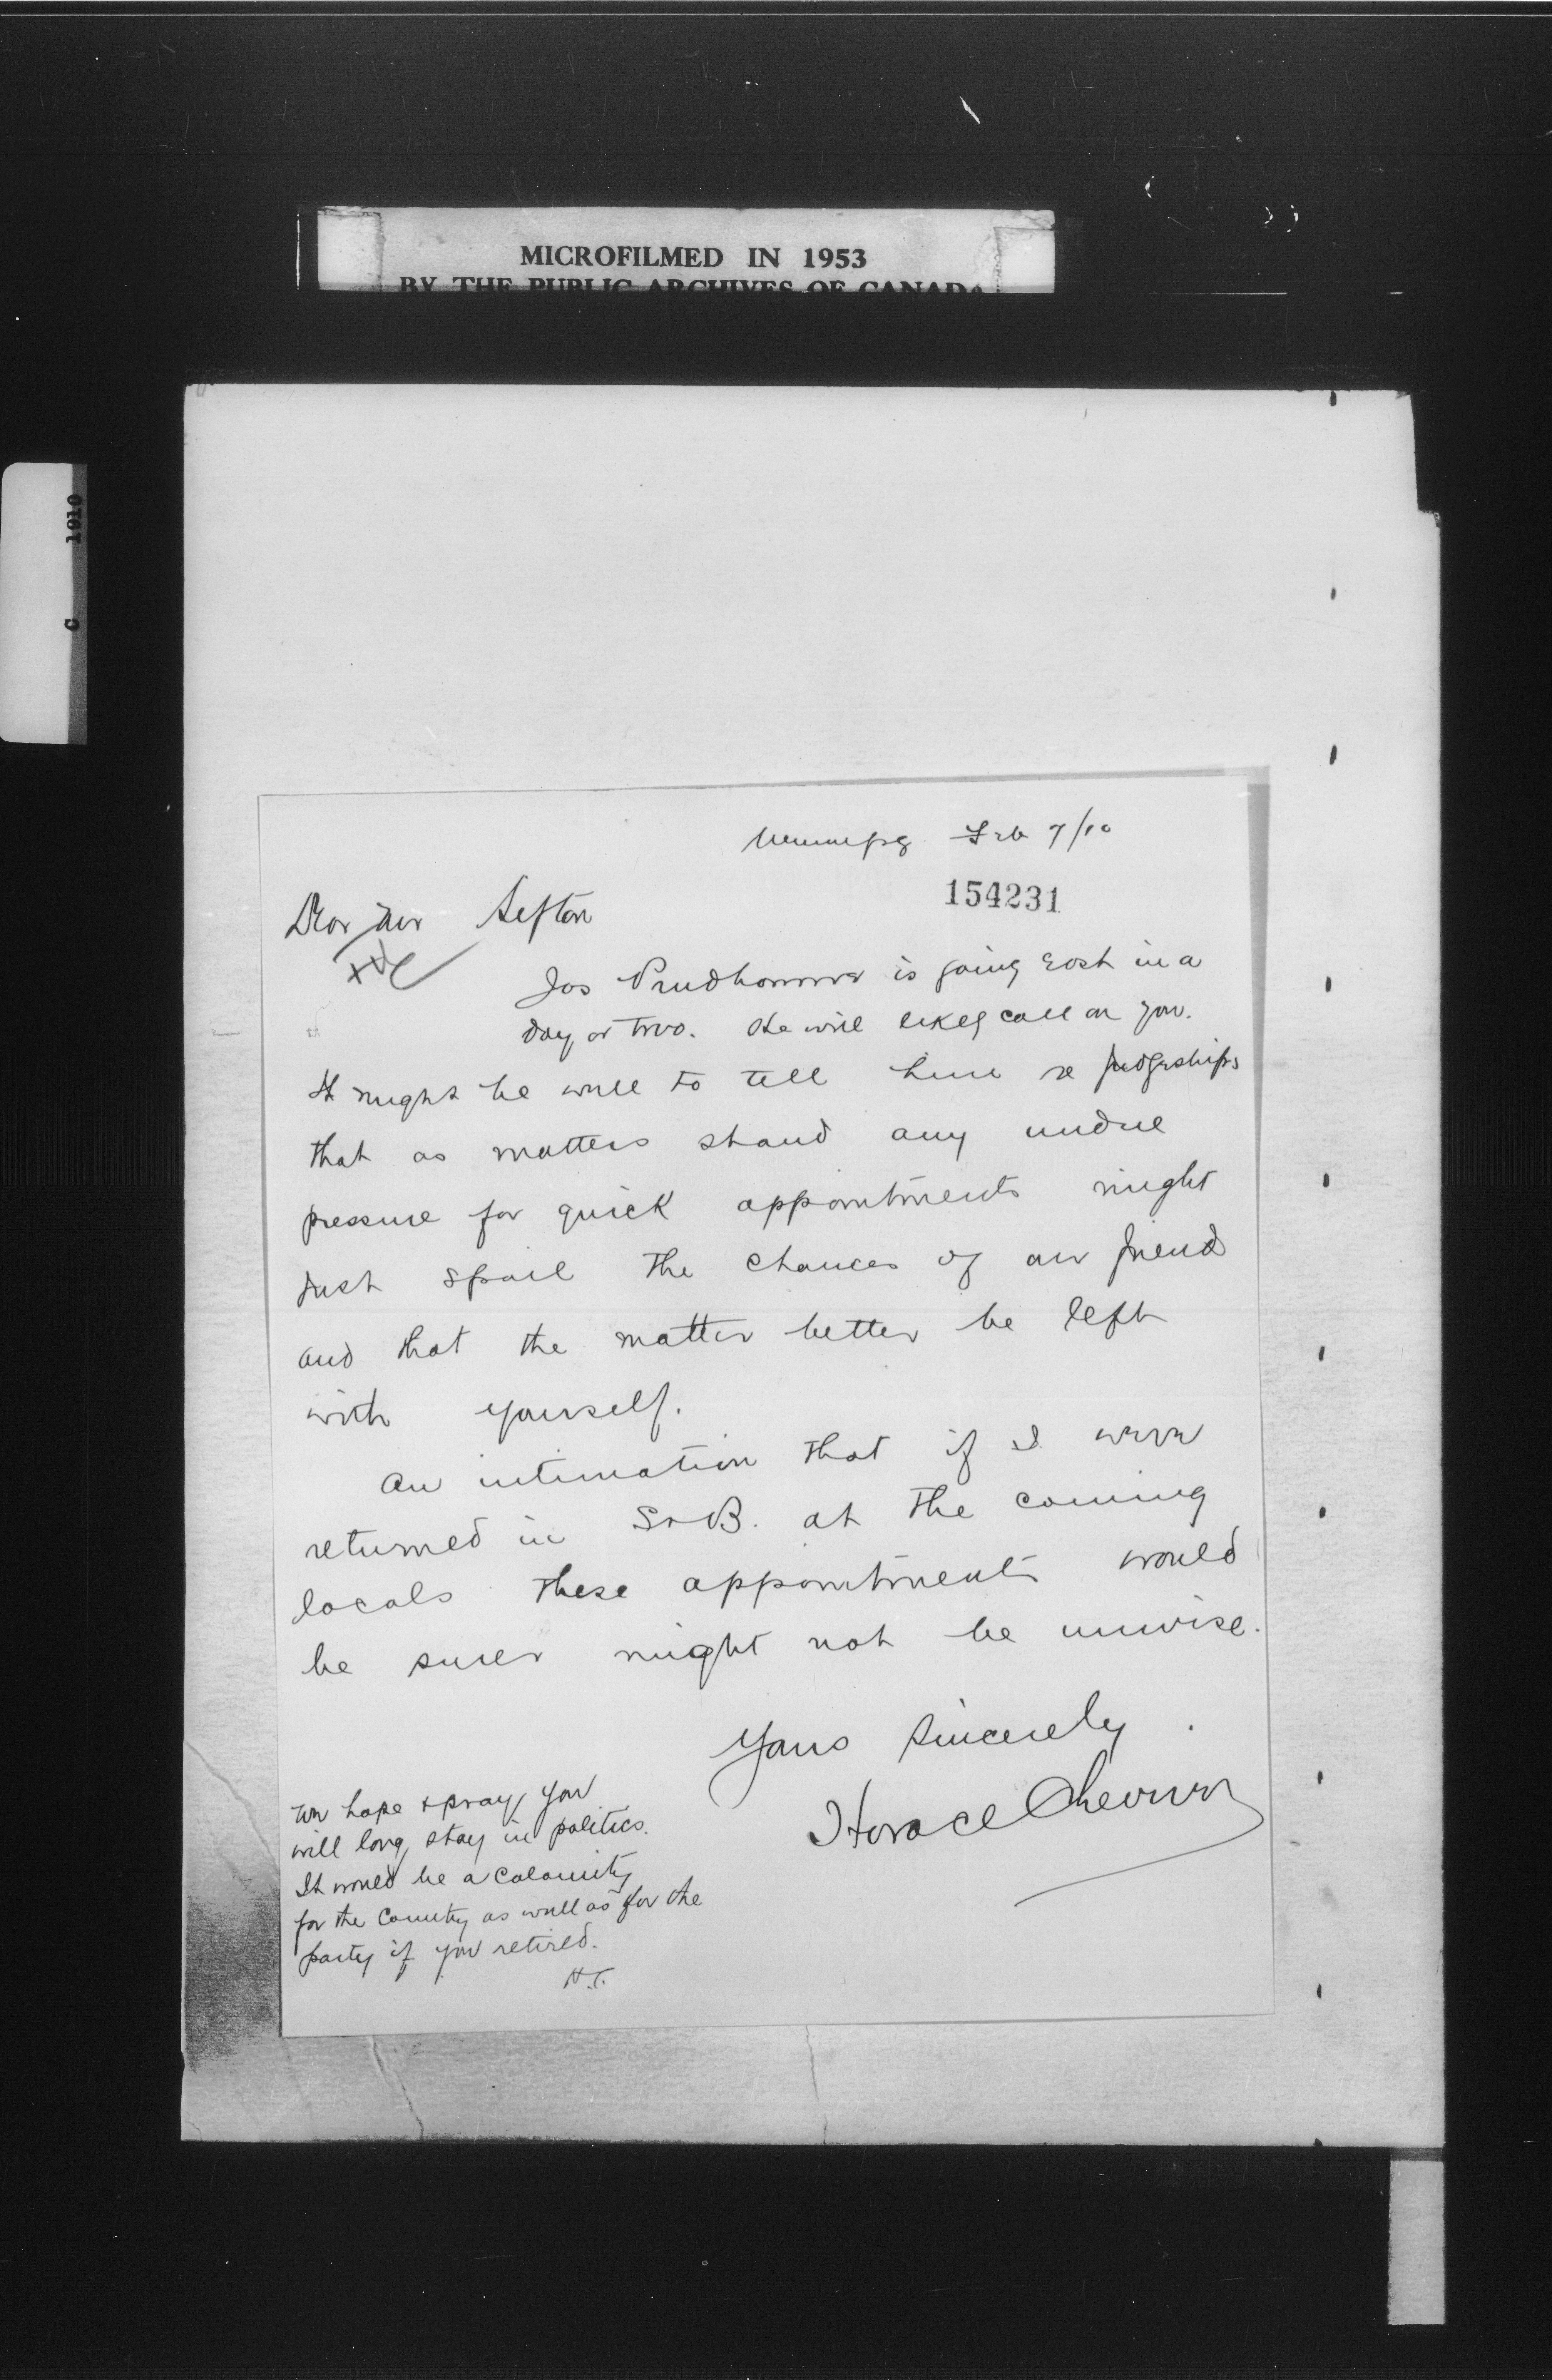 MICROFILMED IN 1953
BY THE PUBLIC ARCHIVES OF CANADA
C 1910
Winnipeg Feb 7/10
154231
Dear Mr Sifton
Jos Prudhomme is going East in a
day or two. He will likely call on you.
It might be well to tell him re judgeships
that as matters stand any undue
pressure for quick appointments might
just spoil the chances of our friend
and that the matter better be left
with yourself.
An intimation that if I were
returned in St B. at the coming
locals these appointments would
be surer might not be unwise.
Yours Sincerely
Horace Chevrier
We hope & pray you
will long stay in politics.
It would be a calamity
for the Country as well as for the
party if you retired.
H.C.